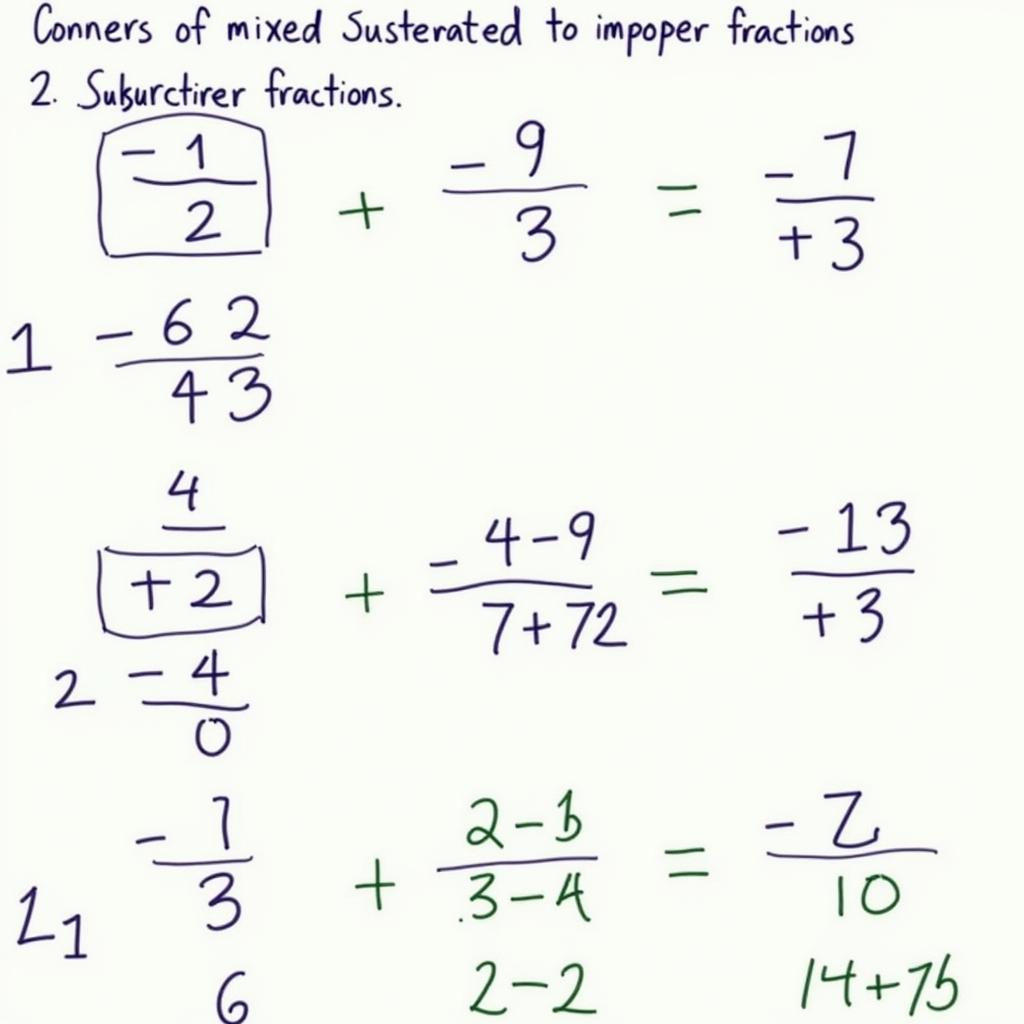 Conners of mixed Susterated to impoper fractions
2. Suburctirer fractions.
- 1 - 9 - 7
2 + 3 = + 3
1 - 6 2
4 3
4
+ 2 + - 4 - 9 = - 13
7 + 72 + 3
2 - 4
0
- 1 2 - 1 - 2
3 + 3 - 4 = 10
L1
6 2 - 2 14 + 75